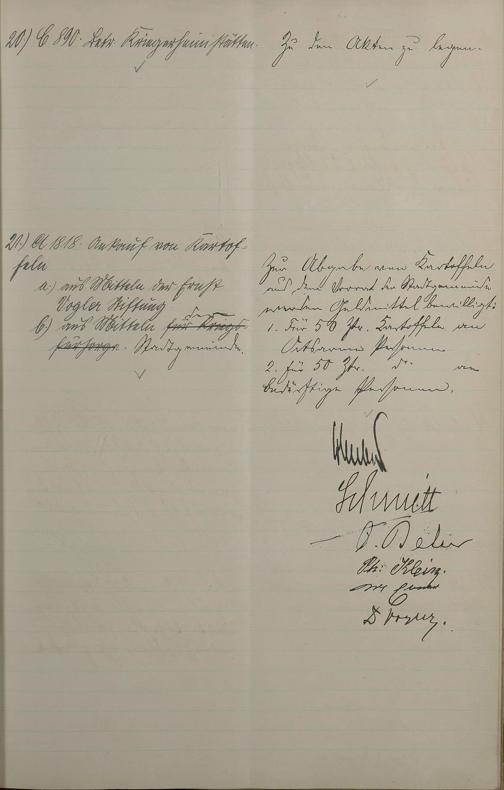 20) C 890. betr. Kriegerheimstätten.
Zu den Akten zu legen.
21.) A 1818. Ankauf von Kartof-
feln
a.) aus Mitteln der Ernst
Vogler Stiftung
b.) aus Mitteln der für Kriegs-
fürsorge. Stadtgemeinde.
Zur Abgabe von Kartoffeln
aus dem Vorrat der Stadtgemeinde
werden Geldmittel bewilligt:
1. Für 50 Ztr. Kartoffeln an
Ortsarme Personen
2. für 50 Ztr. do. an
bedürftige Personen.
Schmitt
Ph. Klein.